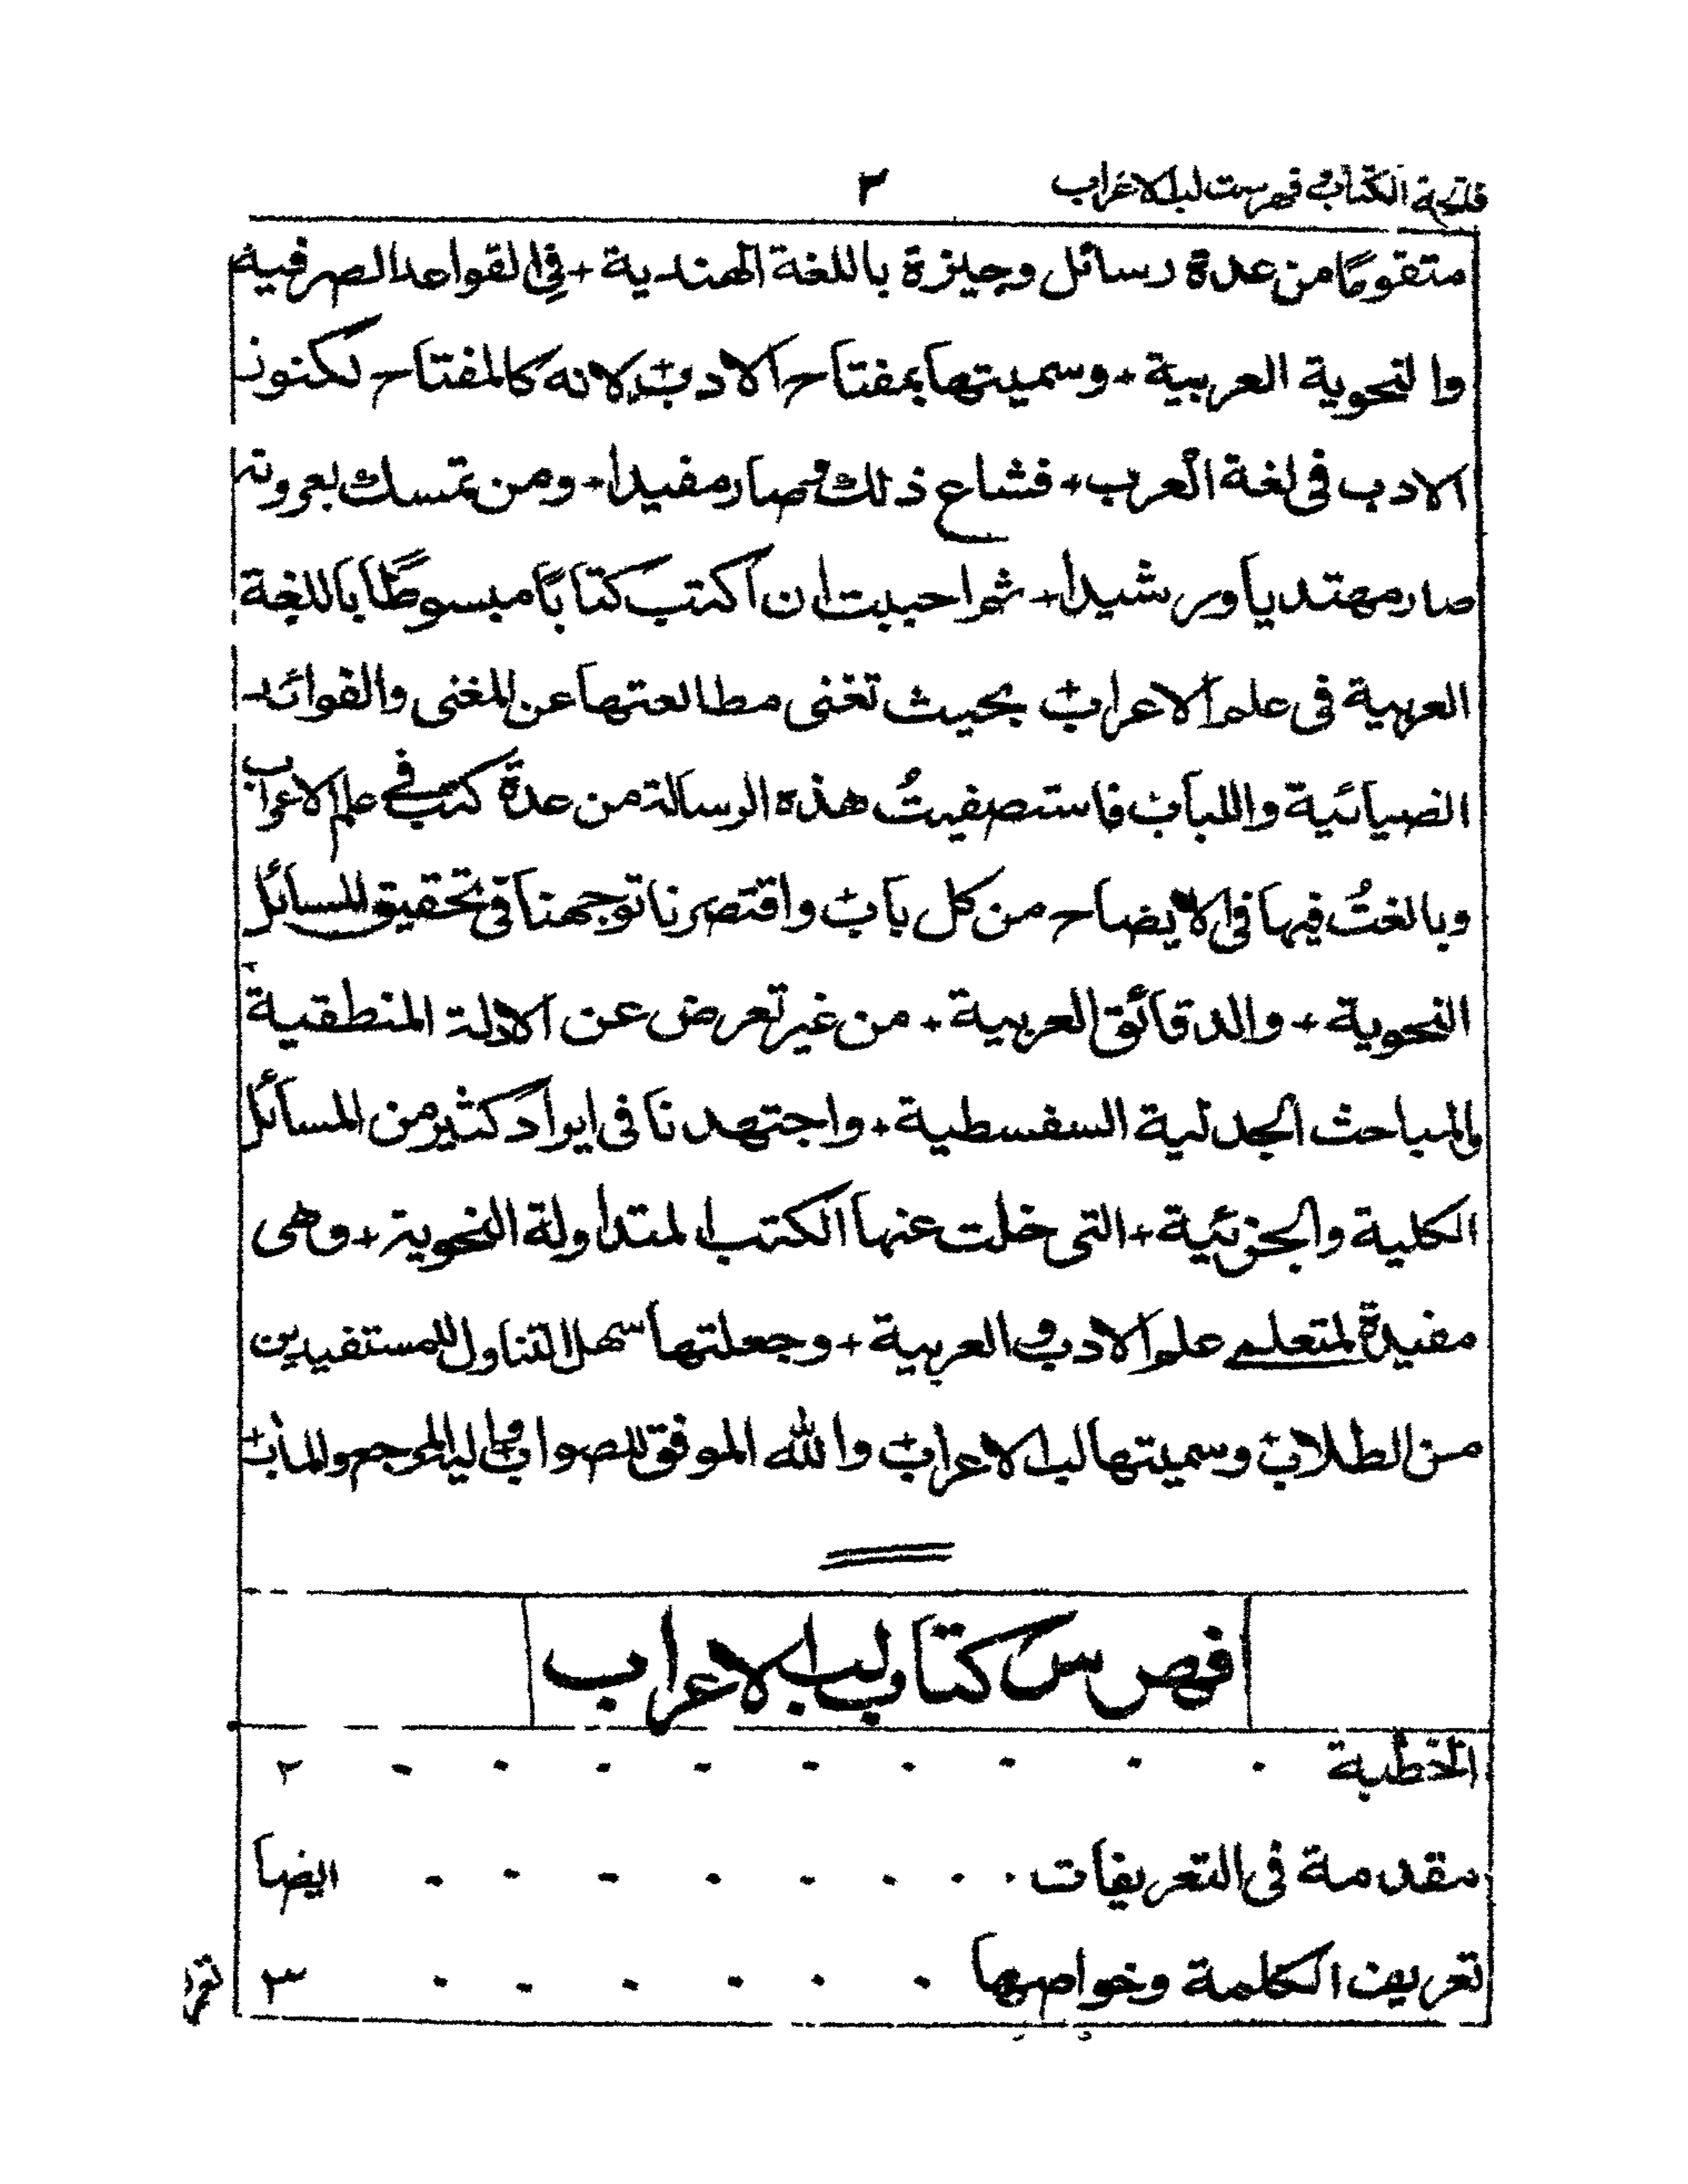 فاتحة الكتاب وفهرست لب الاعراب ٢
متقومًا من عدة رسائل وجيزة باللغة الهندية + فى القواعد الصرفية
والنحوية العربية + وسميتها بمفتاح الادب + لانه كالمفتاح لكنوز
الادب فى لغة العرب + فشاع ذلك وصار مفيدا + ومن تمسك بعروته
صار مهتديا ورشيدا + ثم احببت ان اكتب كتابًا مبسوطًا باللغة
العربية فى علم الاعراب + بحيث تغنى مطالعتها عن المغنى والفوائد
الضيائية واللباب + فاستصفيتُ هذه الرسالة من عدة كتب فى علم الاعراب
وبالغتُ فيها فى الايضاح من كل باب + واقتصرنا توجهنا فى تحقيق المسائل
النحوية + والدقائق العربية + من غير تعرض عن الادلة المنطقية +
والمباحث الجدلية السفسطية + واجتهدنا فى ايراد كثير من المسائل
الكلية والجزئية + التى خلت عنها الكتب المتداولة النحوية + وهى
مفيدة لمتعلمى علم الادب والعربية + وجعلتها سهل التناول للمستفيدين
من الطلاب + وسميتها لب الاعراب + والله الموفق للصواب + واليه المرجع والمآب +
فهرس كتاب لب الاعراب
الخطبة ٢
مقدمة فى التعريفات ايضا
تعريف الكلمة وخواصها ٣